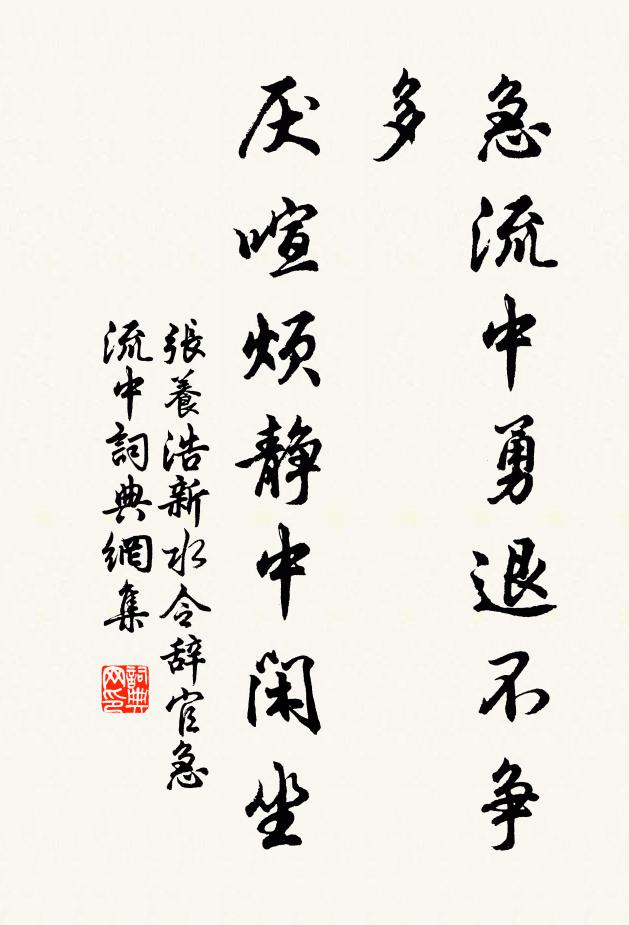 急流中勇退不争
多
厌喧烦静中闲坐
張養浩新水令辞官急
流中詞典網集
詞典
网印